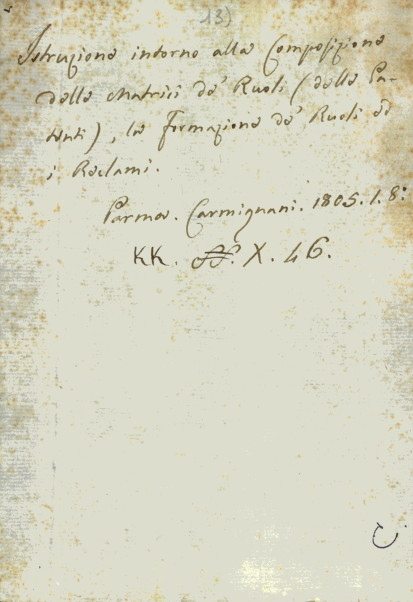 13)
Istruzione intorno alla Composizione
delle Matrici de' Ruoli (delle Pa-
tenti), la Formazione de' Ruoli ed
i Reclami.
Parma. Carmignani. 1805. 1. 8:
KK. X. 46.